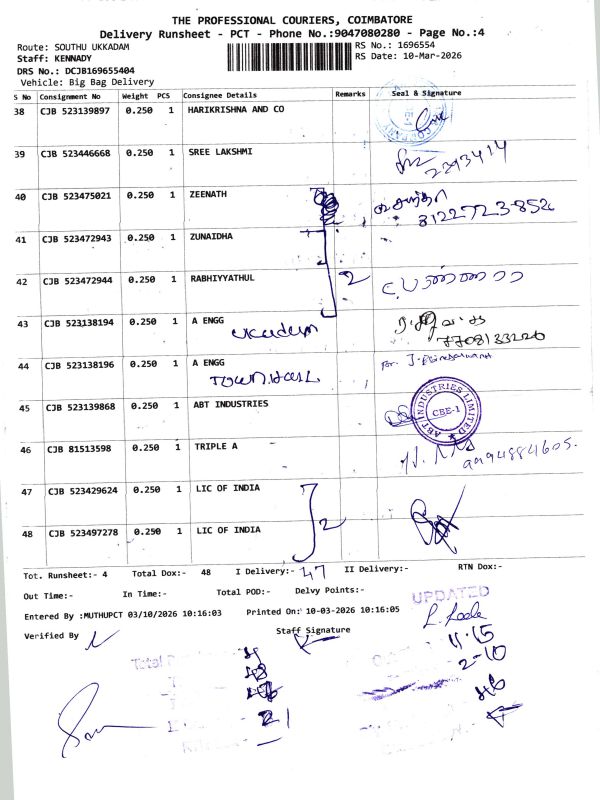 THE PROFESSIONAL COURIERS, COIMBATORE
Delivery Runsheet - PCT - Phone No.:9047080280 - Page No.:4
Route: SOUTHU UKKADAM
RS No.: 1696554
Staff: KENNADY
RS Date: 10-Mar-2026
DRS No.: DCJB169655404
Vehicle: Big Bag Delivery
S No Consignment No Weight PCS Consignee Details Remarks Seal & Signature
38 CJB 523139897 0.250 1 HARIKRISHNA AND CO
39 CJB 523446668 0.250 1 SREE LAKSHMI
2393414
40 CJB 523475021 0.250 1 ZEENATH
8122723852
41 CJB 523472943 0.250 1 ZUNAIDHA
42 CJB 523472944 0.250 1 RABHIYYATHUL 2
43 CJB 523138194 0.250 1 A ENGG
ukadam 7708133220
44 CJB 523138196 0.250 1 A ENGG
TOWN HALL
45 CJB 523139868 0.250 1 ABT INDUSTRIES
ABT INDUSTRIES LIMITED CBE-1
46 CJB 81513598 0.250 1 TRIPLE A
47 CJB 523429624 0.250 1 LIC OF INDIA
2
48 CJB 523497278 0.250 1 LIC OF INDIA
Tot. Runsheet:- 4 Total Dox:- 48 I Delivery:- 47 II Delivery:- RTN Dox:-
Out Time:- In Time:- Total POD:- Delvy Points:-
UPDATED
Entered By :MUTHUPCT 03/10/2026 10:16:03 Printed On: 10-03-2026 10:16:05
Verified By Staff Signature
11-15
Total
2-10
48
46
21